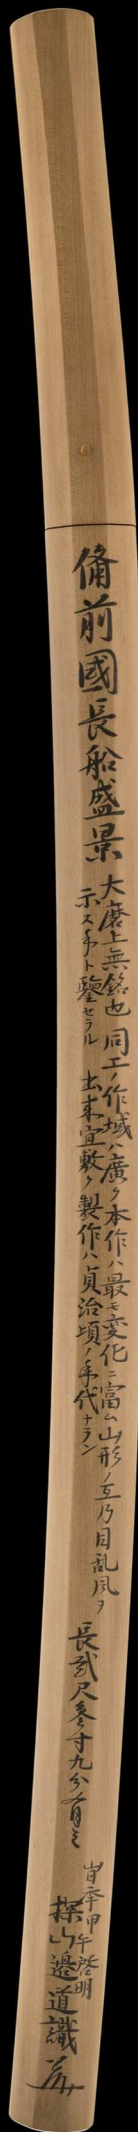 備前國長船盛景
大磨上無銘也 同工ノ作域ハ廣ク本作ハ最モ変化ニ富ム山形ノ互乃目乱風ヲ
示ス手ト鑒セラル 出来宜敷ク製作ハ貞治頃ノ年代ナラン
長弐尺参寸九分有之
旹季甲午啓明
探山邉道識